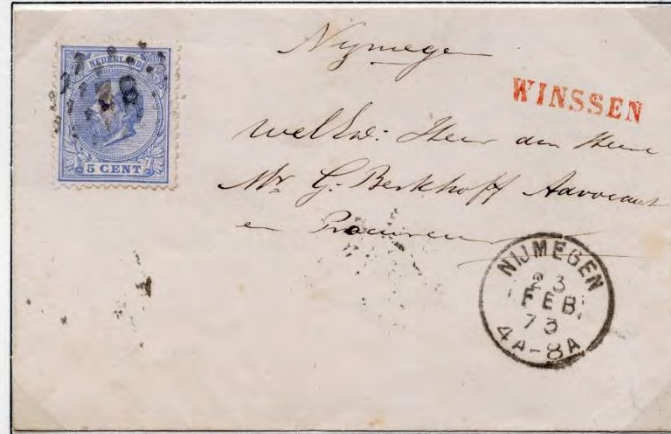 NEDERLAND
5 CENT
Nymegen
WINSSEN
Heer den Heere
Mr G. Berkhoff Advocaat
en Procureur
NIJMEGEN
23
FEB.
73
4A-8A